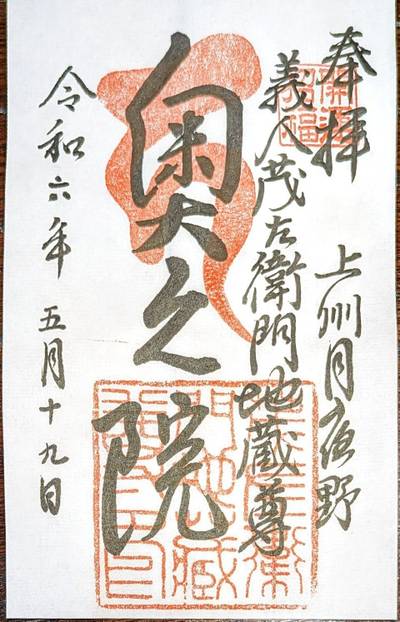 奉拝 上州月夜野
義人茂左衛門地蔵尊
奥之院
令和六年 五月十九日